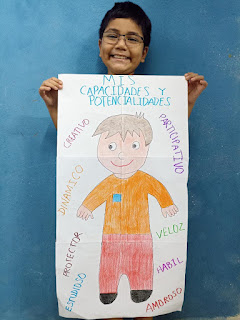 MIS
CAPACIDADES Y
POTENCIALIDADES
CREATIVO
PARTICIPATIVO
DINAMICO
VELOZ
PROTECTOR
HABIL
ESTUDIOSO
AMOROSO